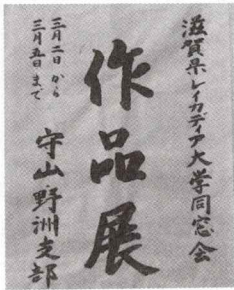 滋賀県レイカディア大学同窓会
作品展
三月二日から
三月五日まで
守山野洲支部